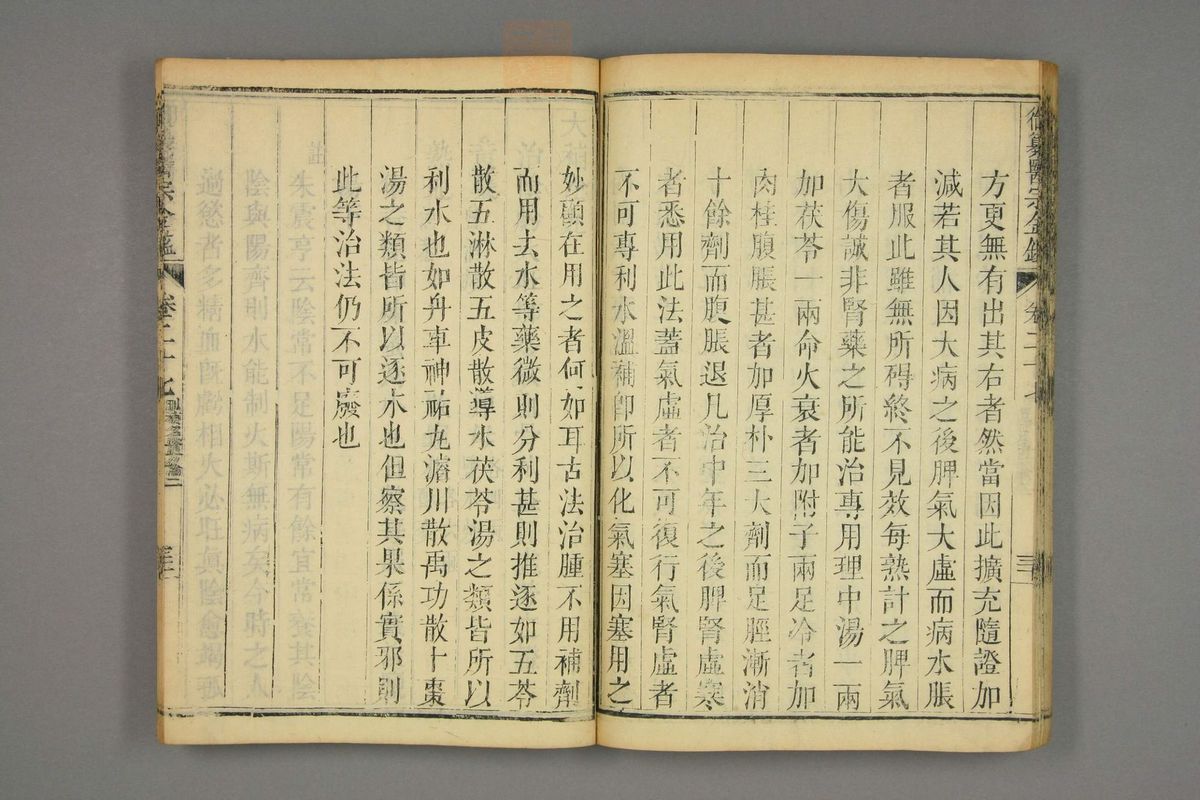 方更無有出其右者然當因此擴充隨證加
減若其人因大病之後脾氣大虛而病水脹
者服此雖無所碍終不見效每熟計之脾氣
大傷誠非腎藥之所能治專用理中湯一兩
加茯苓一兩命火衰者加附子兩足冷者加
肉桂腹脹甚者加厚朴三大劑而足脛漸消
十餘劑而腹脹退凡治中年之後脾腎虛寒
者悉用此法蓋氣虛者不可復行氣腎虛者
不可專利水溫補卽所以化氣塞因塞用之
妙顯在用之者何如耳古法治腫不用補劑
而用去水等藥微則分利甚則推逐如五苓
散五淋散五皮散導水茯苓湯之類皆所以
利水也如舟車神祐丸濬川散禹功散十棗
湯之類皆所以逐水也但察其果係實邪則
此等治法仍不可廢也
御纂醫宗金鑑
卷二十七